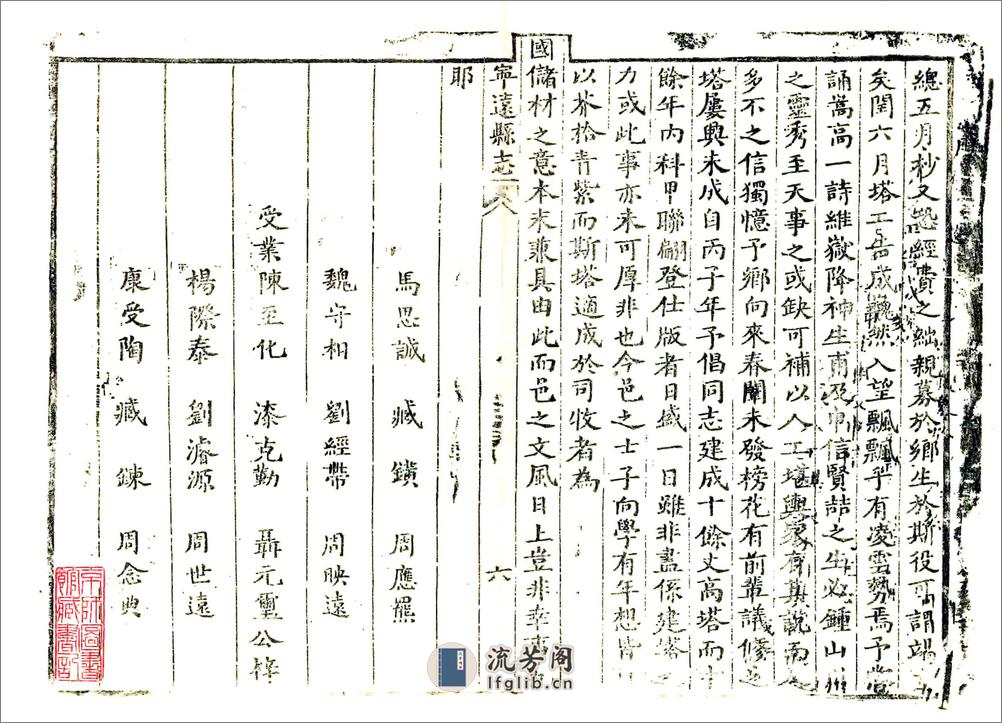 總五月杪又恐經費之絀親募於鄉生於斯役可謂竭
矣閏六月塔工告成巍然入望飄飄乎有凌雲勢焉予嘗
誦嵩高一詩維嶽降神生甫及申信賢喆之生必鍾山川
之靈秀至天事之或缺可補以人工堪輿家有其說而
多不之信獨憶予鄉向來春闈未發榜花有前輩議修
塔屢興未成自丙子年予倡同志建成十餘丈高塔而十
餘年內科甲聯翩登仕版者日盛一日雖非盡係建塔
力或此事亦未可厚非也今邑之士子向學有年想皆
以芥拾青紫而斯塔適成於司牧者為
國儲材之意本末兼具由此而邑之文風日上豈非幸
耶
寧遠縣志 卷八 六
馬思誠 臧鑛 周應羆
魏守相 劉經帶 周映遠
受業陳至化 漆克勤 聶元璽公
楊際泰 劉濬源 周世遠
康受陶 臧鍊 周念典
流芳阁
lfglib.cn